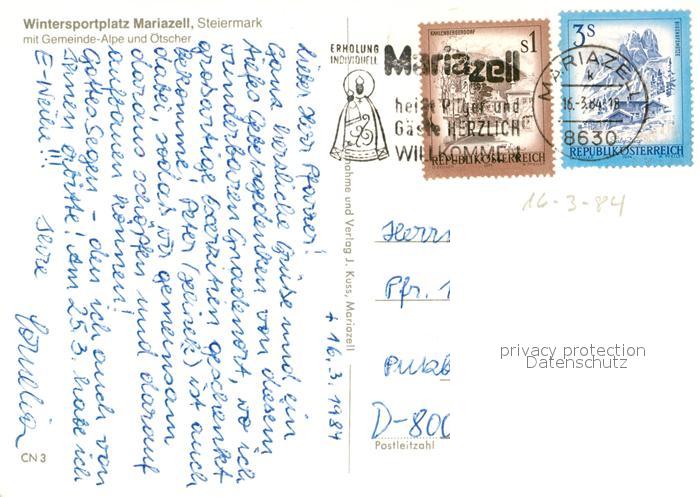 Wintersportplatz Mariazell, Steiermark
mit Gemeinde-Alpe und Ötscher
+ 16.3.1984
Lieber Herr Pfarrer!
Ganz herzliche Grüße und ein
süßes Gebetsgedenken von diesem
wunderbaren Gnadenort, wo ich
großartige Exerzitien geschenkt
bekomme! Peter (Jelinek) ist auch
dabei, sodaß wir gemeinsam
daraus schöpfen und darauf
aufbauen können!
Gottes Segen - den ich auch von
Ihnen erbitte! Am 25.3. habe ich
E-Weihe!!! Ihre
Cornelia
CN 3
nahme und Verlag J. Kuss, Mariazell
ERHOLUNG
INDIVIDUELL
Mariazell
heißt Pilger und
Gäste HERZLICH
WILLKOMMEN
KAHLENBERGERDORF
S1
REPUBLIK ÖSTERREICH
3S
BISCHOFSMÜTZE
REPUBLIK ÖSTERREICH
MARIAZELL
k
16.-3.84-18
8630
16-3-84
Herrn
Pfr.
D-800
Postleitzahl
privacy protection
Datenschutz